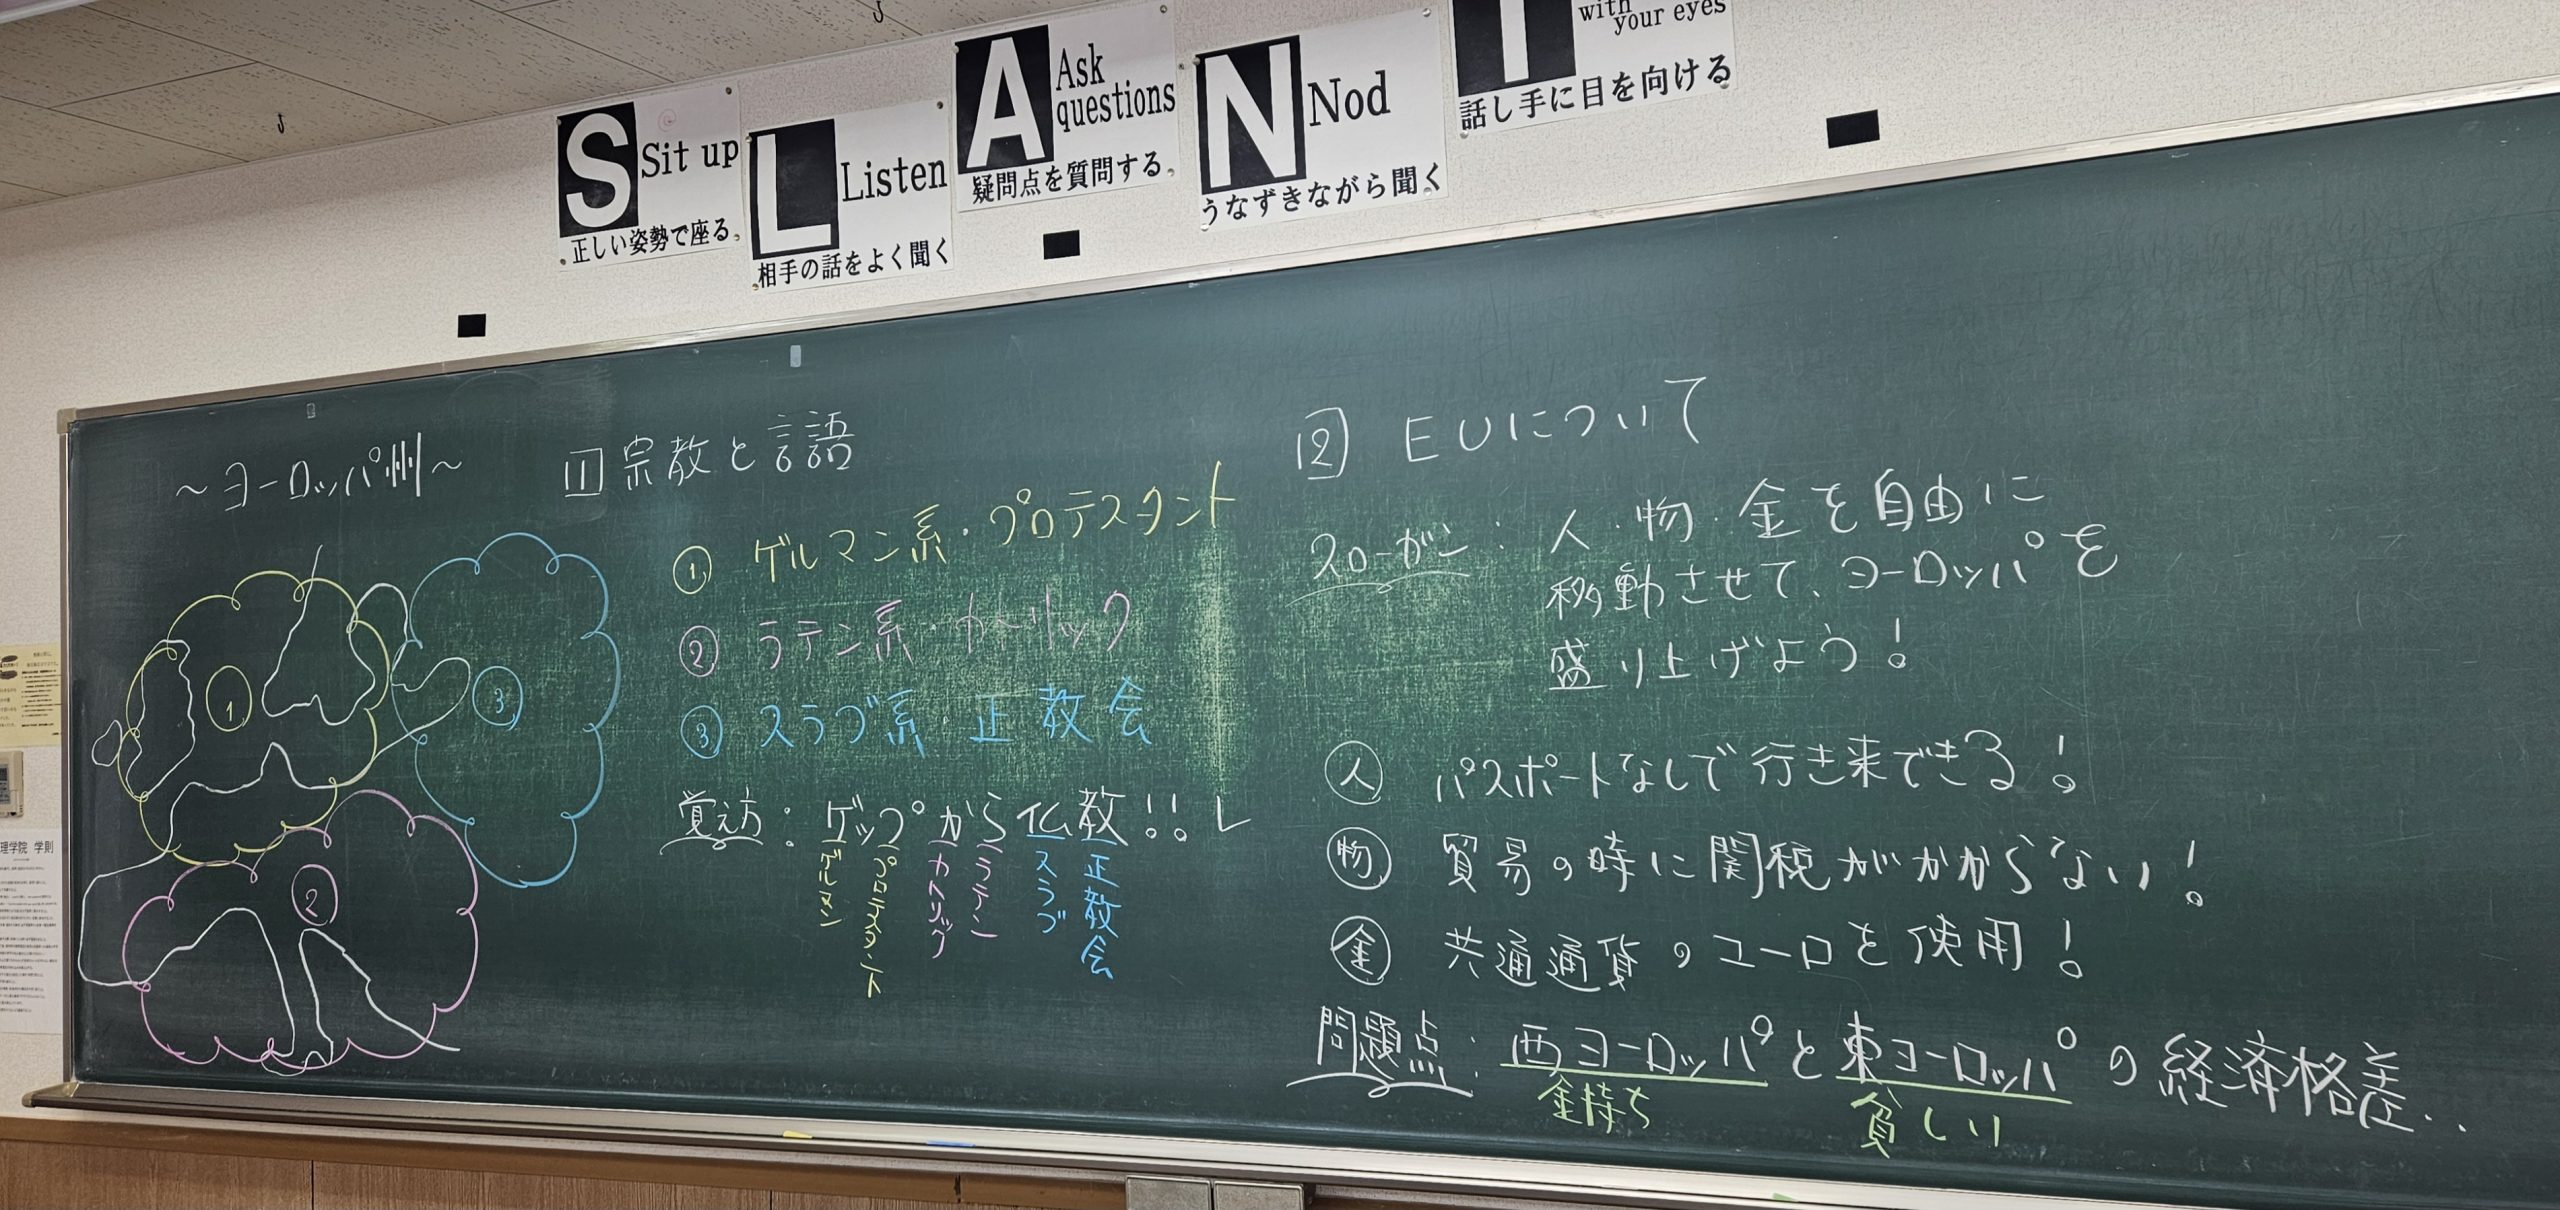 S Sit up
正しい姿勢で座る。
L Listen
相手の話をよく聞く
A Ask questions
疑問点を質問する。
N Nod
うなずきながら聞く
T with your eyes
話し手に目を向ける
～ヨーロッパ州～
1 宗教と言語
① ゲルマン系・プロテスタント
② ラテン系・カトリック
③ スラブ系・正教会
覚え方：ゲップから仏教!!
ゲルマン
プロテスタント
カトリック
ラテン
スラブ
正教会
①
②
③
2 EUについて
スローガン：人・物・金を自由に
移動させて、ヨーロッパを
盛り上げよう!
人 パスポートなしで行き来できる!
物 貿易の時に関税がかからない!
金 共通通貨のユーロを使用!
問題点：西ヨーロッパと東ヨーロッパの経済格差..
金持ち
貧しい
理学院 学則